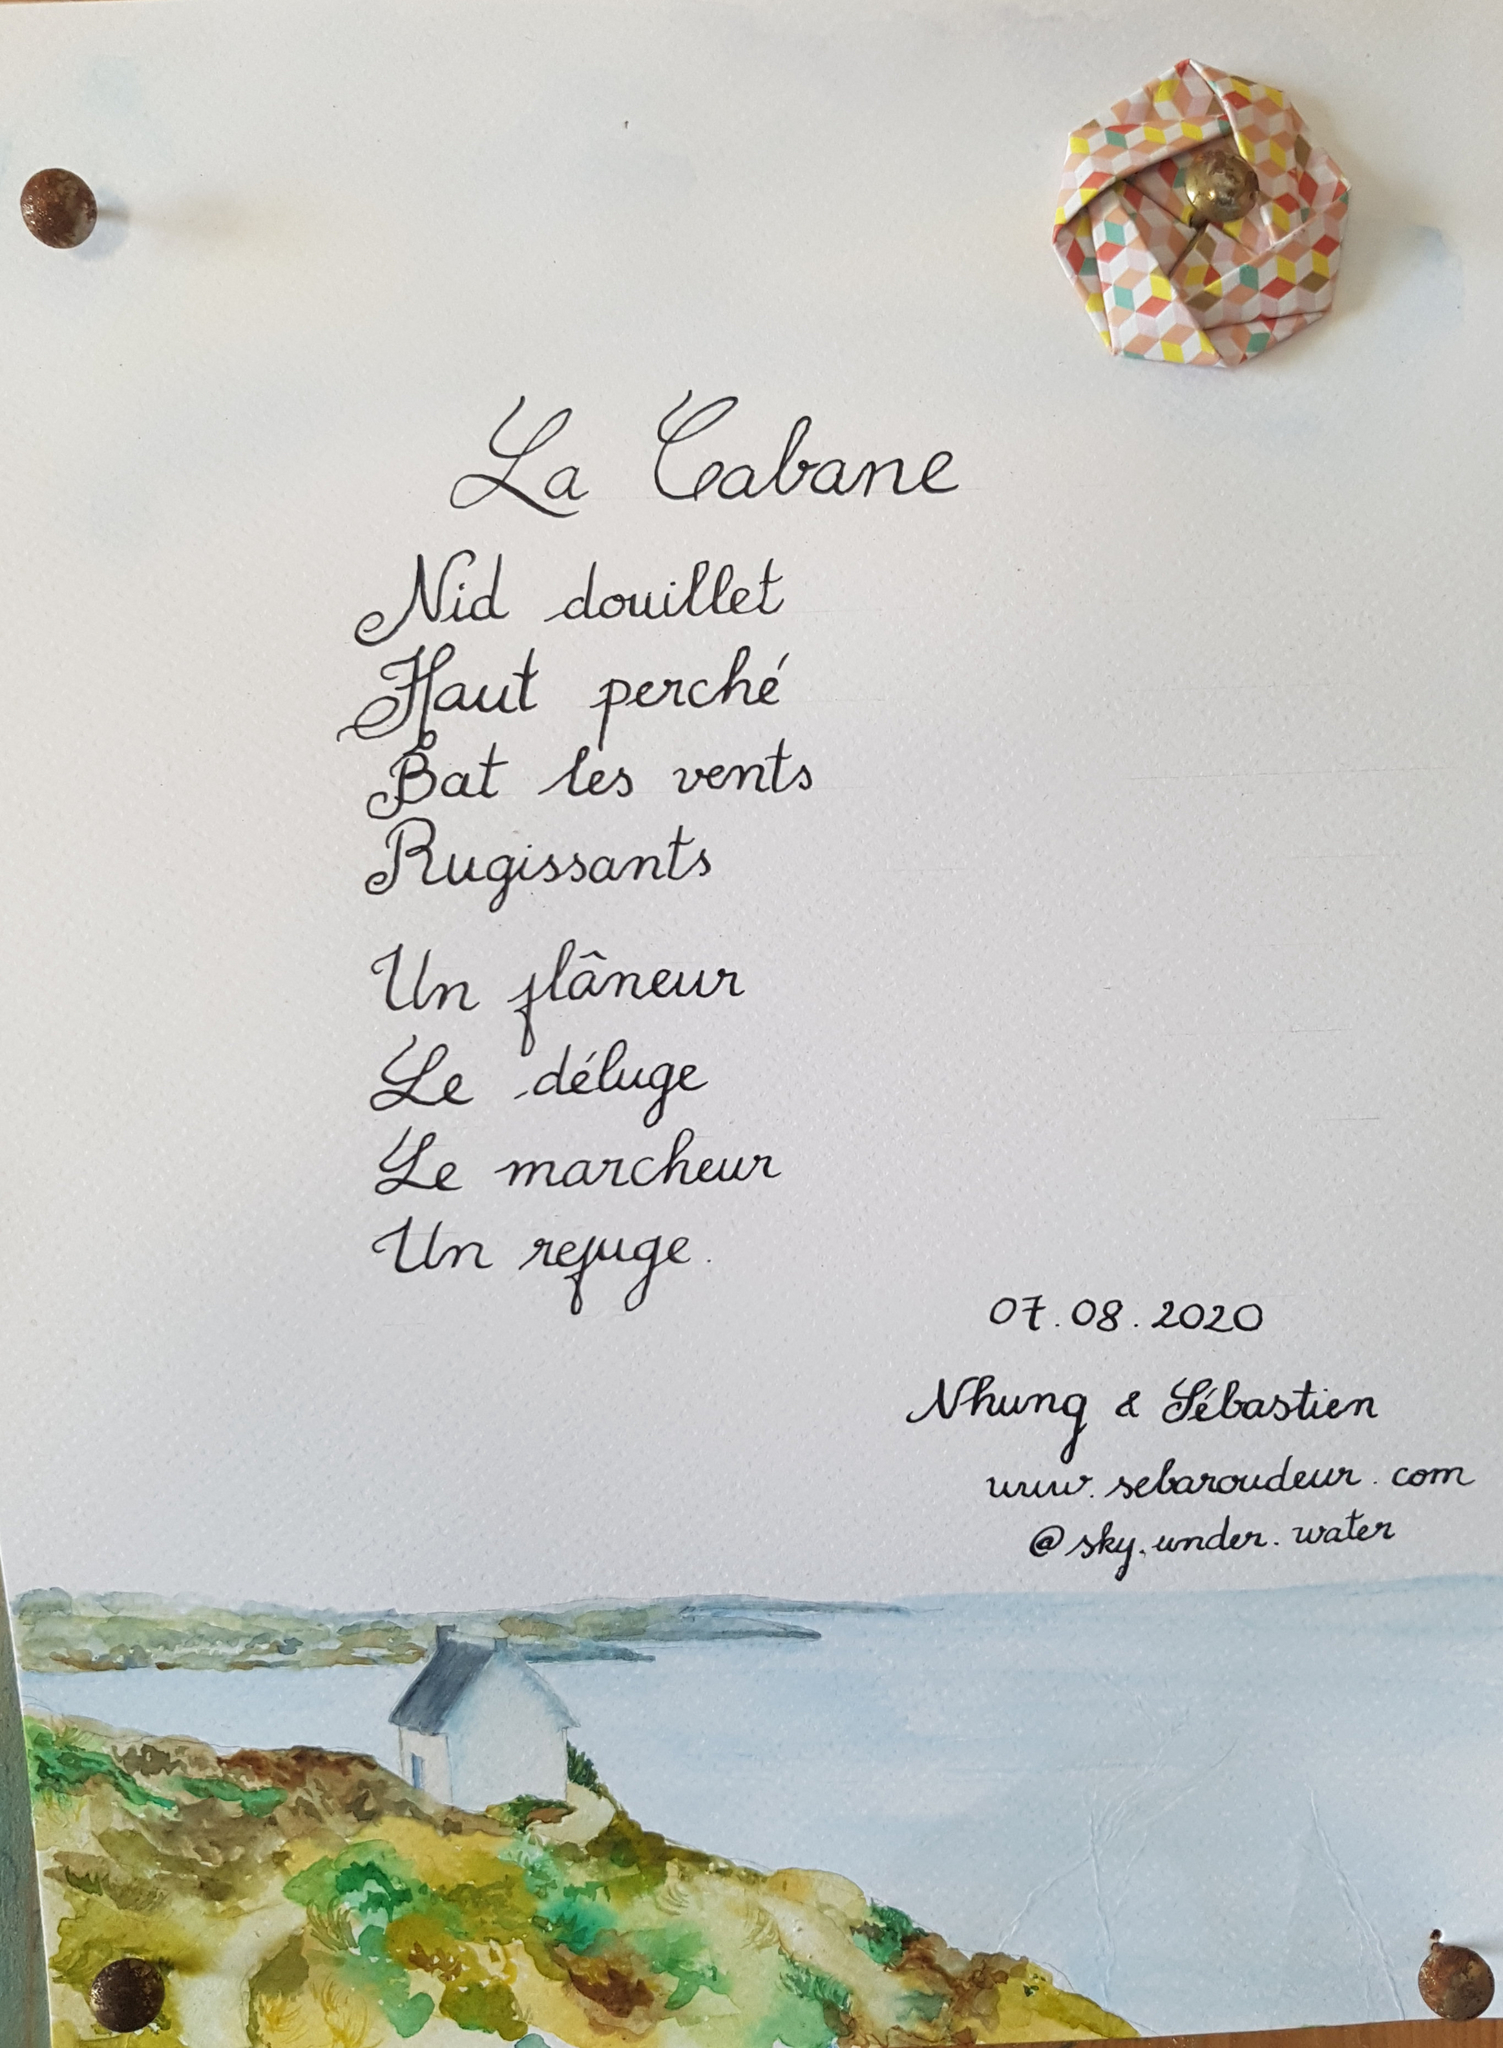 La Cabane
Nid douillet
Haut perché
Bat les vents
Rugissants
Un flâneur
Le déluge
Le marcheur
Un refuge.
07.08.2020
Nhung & Sébastien
www.sebaroudeur.com
@sky.under.water